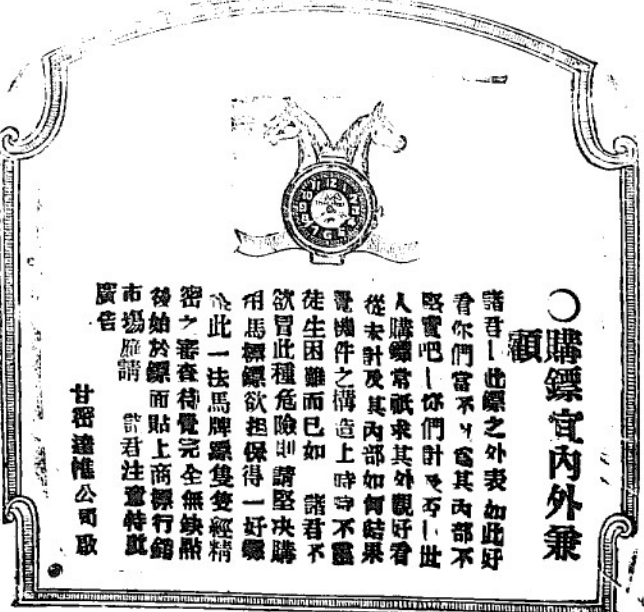 ○購鏢宜內外兼
顧
諸君!此鏢之外表如此好
看你們當不以爲其內部不
堅實吧!你們計及否!世
人購鏢常祇求其外觀好看
從未計及其內部如何結果
覺機件之構造上時時不靈
徒生困難而已如 諸君不
欲冒此種危險則請堅决購
用馬標鏢欲担保得一好鏢
此一法馬牌鏢隻隻經精
密之審查待覺完全無缺點
後始於鏢面貼上商標行銷
市場 請 諸君注意特此
廣告
甘密達惟公司啟